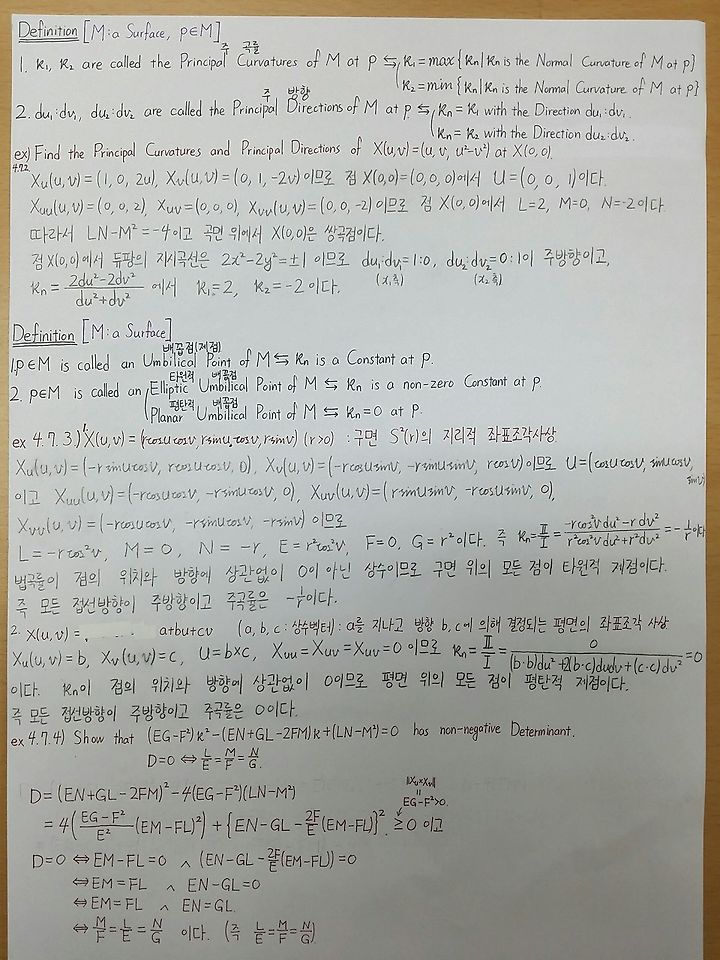 Definition [M: a Surface, p∈M]
주 곡률
1. κ₁, κ₂ are called the Principal Curvatures of M at p ⇆ κ₁ = max{κn|κn is the Normal Curvature of M at p}
κ₂ = min{κn|κn is the Normal Curvature of M at p}
주 방향
2. du₁:dv₁, du₂:dv₂ are called the Principal Directions of M at p ⇆ κn = κ₁ with the Direction du₁:dv₁.
κn = κ₂ with the Direction du₂:dv₂.
ex) Find the Principal Curvatures and Principal Directions of X(u,v)=(u, v, u²-v²) at X(0,0).
4.7.2
Xu(u,v)=(1, 0, 2u), Xv(u,v)=(0, 1, -2v) 이므로 점 X(0,0)=(0,0,0)에서 U=(0, 0, 1)이다.
Xuu(u,v)=(0, 0, 2), Xuv=(0, 0, 0), Xvv(u,v)=(0, 0, -2) 이므로 점 X(0,0)에서 L=2, M=0, N=-2이다.
따라서 LN-M²=-4이고 곡면 위에서 X(0,0)은 쌍곡점이다.
점 X(0,0)에서 듀팡의 지시곡선은 2x²-2y²=±1 이므로 du₁:dv₁=1:0, du₂:dv₂=0:1이 주방향이고,
(x₁축) (x₂축)
κn = (2du²-2dv²)/(du²+dv²) 에서 κ₁=2, κ₂=-2이다.
Definition [M: a Surface]
배꼽점(제점)
1. p∈M is called an Umbilical Point of M ⇆ κn is a Constant at p.
타원적 배꼽점
2. p∈M is called an Elliptic Umbilical Point of M ⇆ κn is a non-zero Constant at p.
평탄적 배꼽점
Planar Umbilical Point of M ⇆ κn=0 at p.
ex 4.7.3) 1. X(u,v)=(rcosucosv, rsinucosv, rsinv) (r>0) : 구면 S²(r)의 지리적 좌표조각사상
Xu(u,v)=(-rsinucosv, rcosucosv, 0), Xv(u,v)=(-rcosusinv, -rsinusinv, rcosv)이므로 U=(cosucosv, sinucosv, sinv)
이고 Xuu(u,v)=(-rcosucosv, -rsinucosv, 0), Xuv(u,v)=(rsinusinv, -rcosusinv, 0),
Xvv(u,v)=(-rcosucosv, -rsinucosv, -rsinv) 이므로
L=-rcos²v, M=0, N=-r, E=r²cos²v, F=0, G=r²이다. 즉 κn=Ⅱ/Ⅰ=(-rcos²vdu²-rdv²)/(r²cos²vdu²+r²dv²)=-1/r이다
법곡률이 점의 위치와 방향에 상관없이 0이 아닌 상수이므로 구면 위의 모든 점이 타원적 제점이다.
즉 모든 접선방향이 주방향이고 주곡률은 -1/r이다.
2. X(u,v)= a+bu+cv (a, b, c : 상수벡터) : a를 지나고 방향 b, c에 의해 결정되는 평면의 좌표조각 사상
Xu(u,v)=b, Xv(u,v)=c, U=b×c, Xuu=Xuv=Xvv=0 이므로 κn=Ⅱ/Ⅰ=0/((b·b)du²+2(b·c)dudv+(c·c)dv²)=0
이다. κn이 점의 위치와 방향에 상관없이 0이므로 평면 위의 모든 점이 평탄적 제점이다.
즉 모든 접선방향이 주방향이고 주곡률은 0이다.
ex 4.7.4) Show that (EG-F²)κ²-(EN+GL-2FM)κ+(LN-M²)=0 has non-negative Determinant.
D=0 ⇔ L/E=M/F=N/G.
D=(EN+GL-2FM)²-4(EG-F²)(LN-M²)
||Xu×Xv||
=
EG-F²>0.
=4((EG-F²)/E² (EM-FL)²)+{EN-GL-2F/E(EM-FL)}² ≥0 이고
D=0 ⇔ EM-FL=0 ∧ (EN-GL-2F/E(EM-FL))=0
⇔ EM=FL ∧ EN-GL=0
⇔ EM=FL ∧ EN=GL.
⇔ M/F=L/E=N/G 이다. (즉 L/E=M/F=N/G)